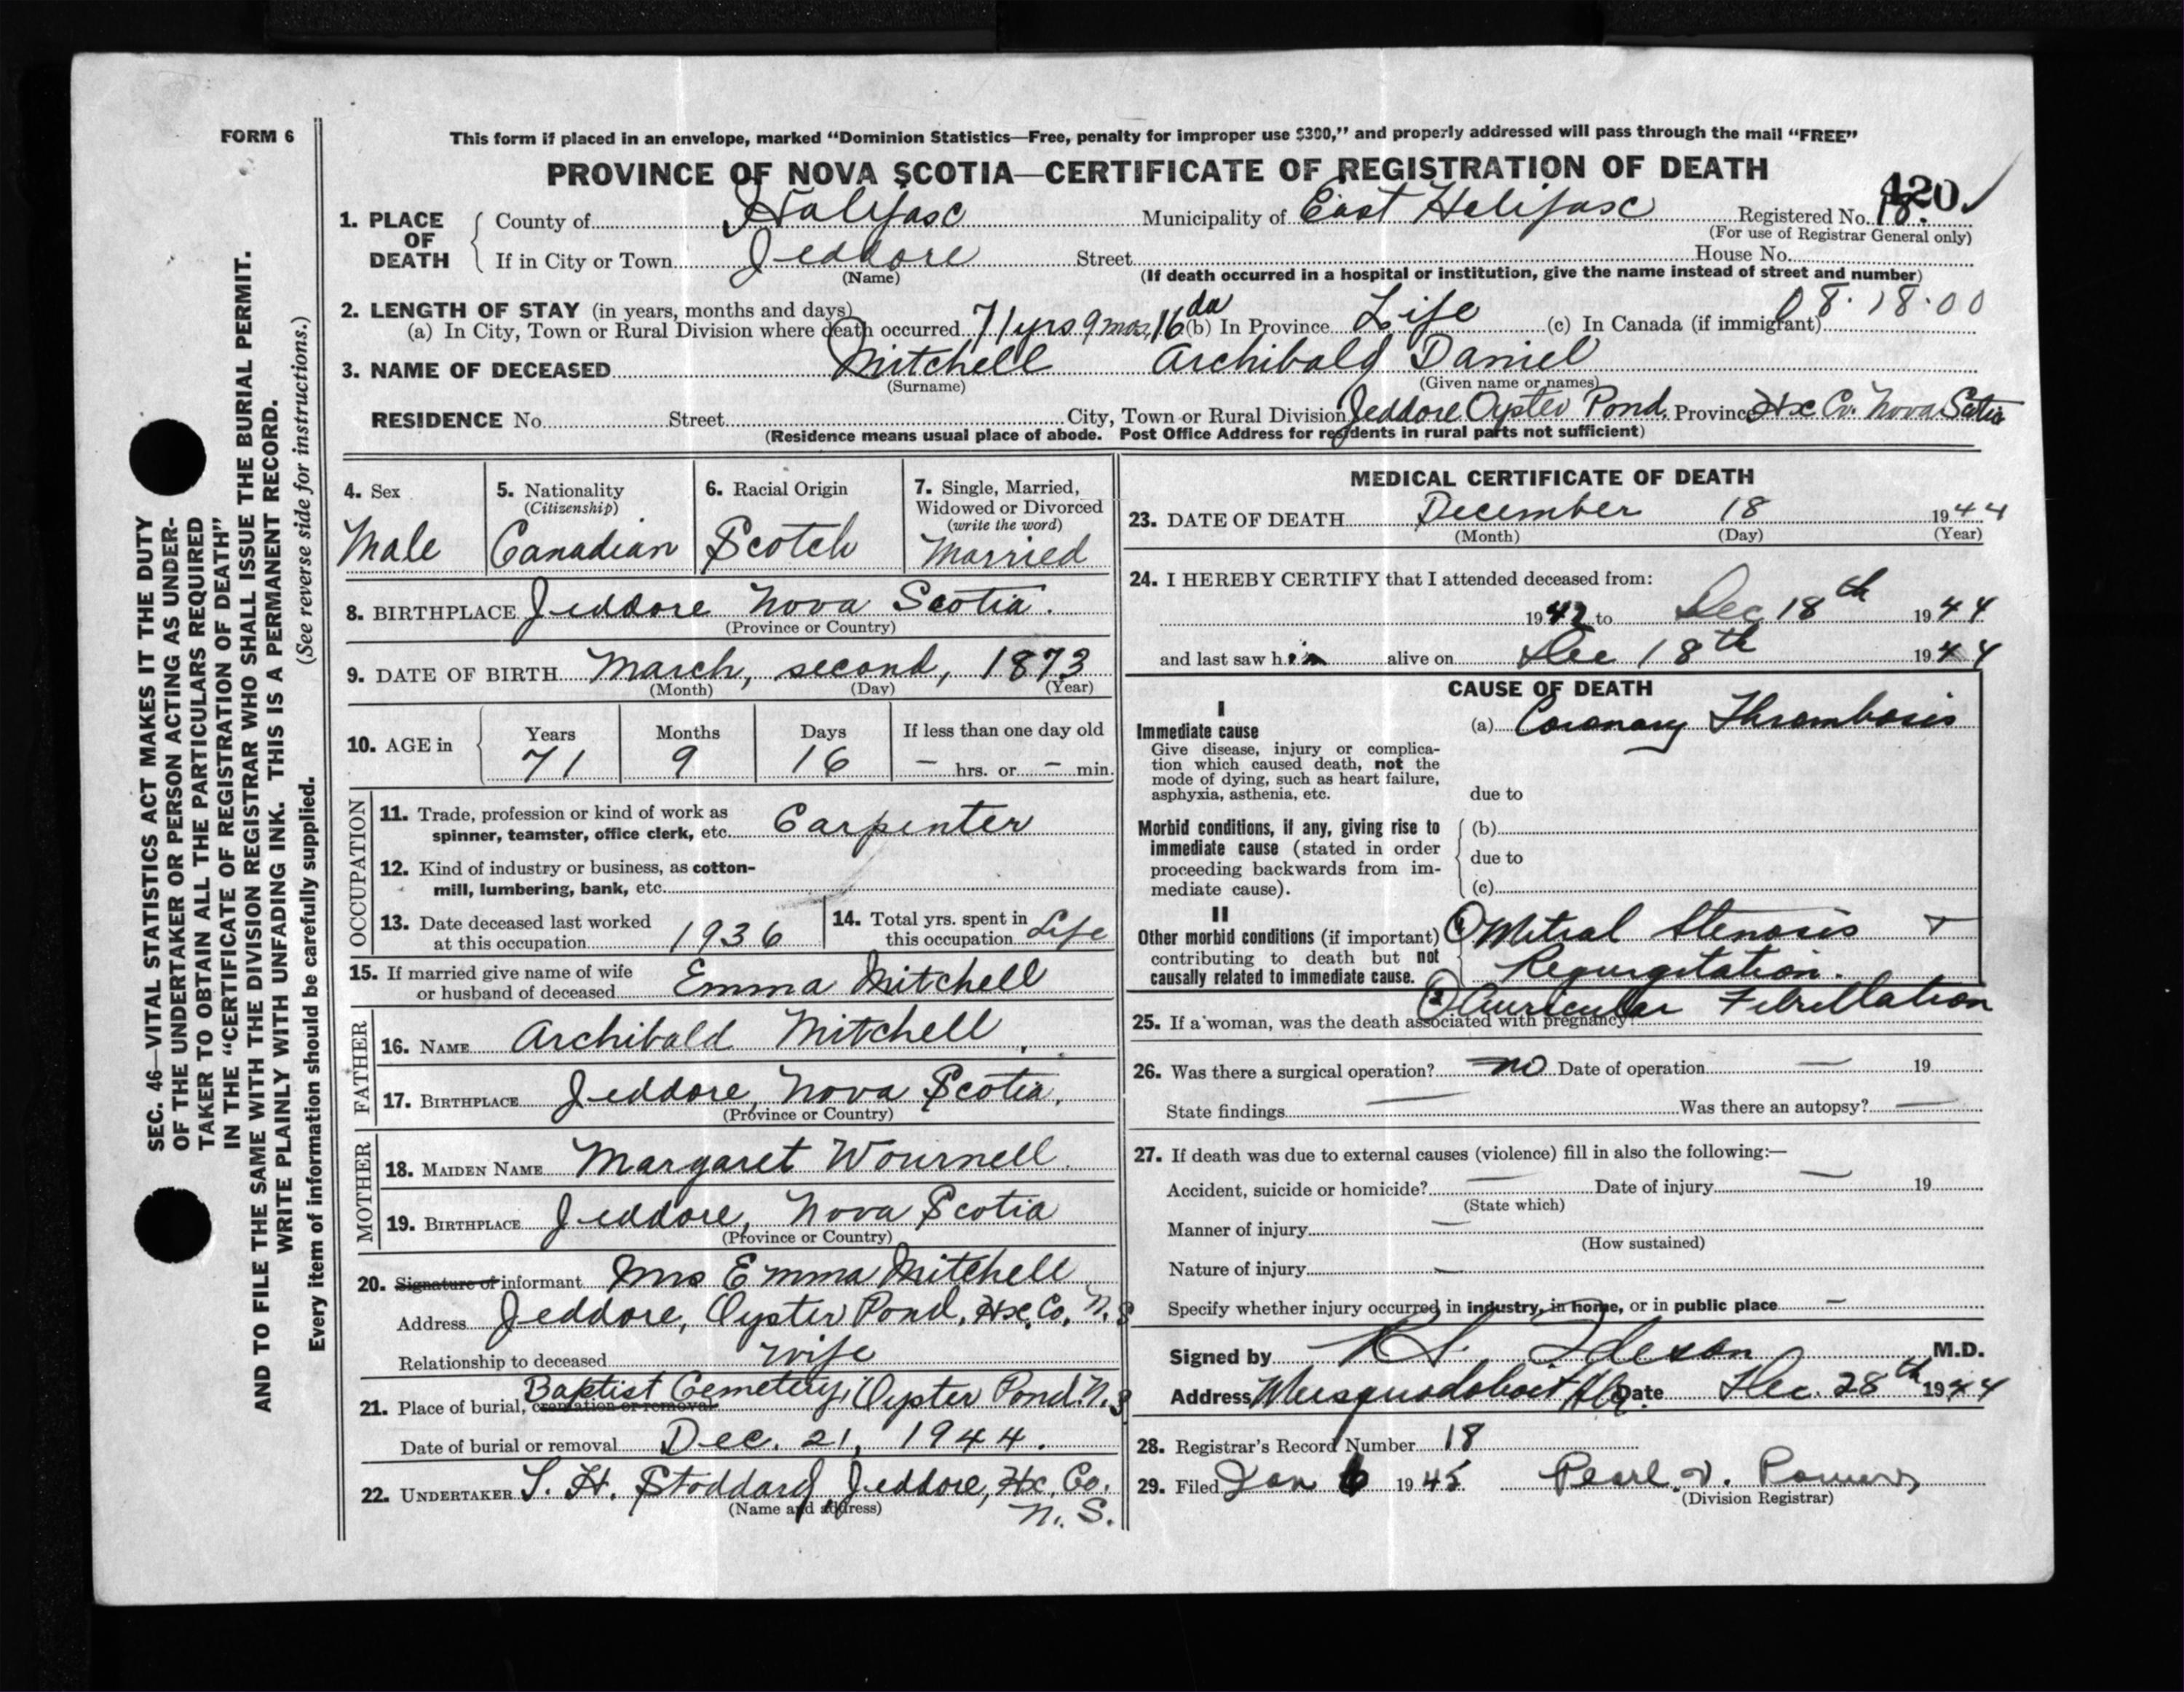 FORM 6
This form if placed in an envelope, marked “Dominion Statistics—Free, penalty for improper use $300,” and properly addressed will pass through the mail “FREE”
PROVINCE OF NOVA SCOTIA—CERTIFICATE OF REGISTRATION OF DEATH
420
1. PLACE OF DEATH County of Halifax Municipality of East Halifax Registered No. 18.
(For use of Registrar General only)
If in City or Town Jeddore Street House No.
(Name) (If death occurred in a hospital or institution, give the name instead of street and number)
2. LENGTH OF STAY (in years, months and days) 08.18.00
(a) In City, Town or Rural Division where death occurred 71 yrs 9 mos, 16 da (b) In Province Life (c) In Canada (if immigrant)
3. NAME OF DECEASED Mitchell Archibald Daniel
(Surname) (Given name or names)
RESIDENCE No. Street City, Town or Rural Division Jeddore Oyster Pond, Province Hx Co. Nova Scotia
(Residence means usual place of abode. Post Office Address for residents in rural parts not sufficient)
4. Sex
Male
5. Nationality
(Citizenship)
Canadian
6. Racial Origin
Scotch
7. Single, Married,
Widowed or Divorced
(write the word)
Married
8. BIRTHPLACE Jeddore Nova Scotia.
(Province or Country)
9. DATE OF BIRTH March, second, 1873
(Month) (Day) (Year)
10. AGE in Years Months Days If less than one day old
71 9 16 – hrs. or – min.
OCCUPATION
11. Trade, profession or kind of work as
spinner, teamster, office clerk, etc. Carpenter
12. Kind of industry or business, as cotton-
mill, lumbering, bank, etc.
13. Date deceased last worked
at this occupation 1936
14. Total yrs. spent in
this occupation Life
15. If married give name of wife
or husband of deceased Emma Mitchell
FATHER
16. NAME Archibald Mitchell.
17. BIRTHPLACE Jeddore, Nova Scotia.
(Province or Country)
MOTHER
18. MAIDEN NAME Margaret Wournell.
19. BIRTHPLACE Jeddore, Nova Scotia
(Province or Country)
20. Signature of informant Mrs Emma Mitchell
Address Jeddore, Oyster Pond, Hx. Co. N.S
Relationship to deceased wife
21. Place of burial, cremation or removal Baptist Cemetery, Oyster Pond. N.S
Date of burial or removal Dec. 21, 1944.
22. UNDERTAKER S. H. Stoddard, Jeddore, Hx. Co.
(Name and address) N. S.
MEDICAL CERTIFICATE OF DEATH
23. DATE OF DEATH December 18 1944
(Month) (Day) (Year)
24. I HEREBY CERTIFY that I attended deceased from:
1942 to Dec 18th 1944
and last saw him alive on Dec 18th 1944
CAUSE OF DEATH
I
Immediate cause
Give disease, injury or complica-
tion which caused death, not the
mode of dying, such as heart failure,
asphyxia, asthenia, etc.
(a) Coronary Thrombosis
due to
Morbid conditions, if any, giving rise to
immediate cause (stated in order
proceeding backwards from im-
mediate cause).
(b)
due to
(c)
II
Other morbid conditions (if important)
contributing to death but not
causally related to immediate cause.
(1) Mitral Stenosis +
Regurgitation.
(2) Auricular Fibrillation
25. If a woman, was the death associated with pregnancy?
26. Was there a surgical operation? no Date of operation — 19
State findings — Was there an autopsy? —
27. If death was due to external causes (violence) fill in also the following:—
Accident, suicide or homicide? — Date of injury — 19
(State which)
Manner of injury —
(How sustained)
Nature of injury —
Specify whether injury occurred in industry, in home, or in public place –
Signed by M.D.
Address Musquodoboit Hbr. Date Dec. 28th 1944
28. Registrar's Record Number 18
29. Filed Jan 6 1945 Pearl V. Powers
(Division Registrar)
SEC. 46—VITAL STATISTICS ACT MAKES IT THE DUTY
OF THE UNDERTAKER OR PERSON ACTING AS UNDER-
TAKER TO OBTAIN ALL THE PARTICULARS REQUIRED
IN THE “CERTIFICATE OF REGISTRATION OF DEATH”
AND TO FILE THE SAME WITH THE DIVISION REGISTRAR WHO SHALL ISSUE THE BURIAL PERMIT.
WRITE PLAINLY WITH UNFADING INK. THIS IS A PERMANENT RECORD.
Every item of information should be carefully supplied. (See reverse side for instructions.)